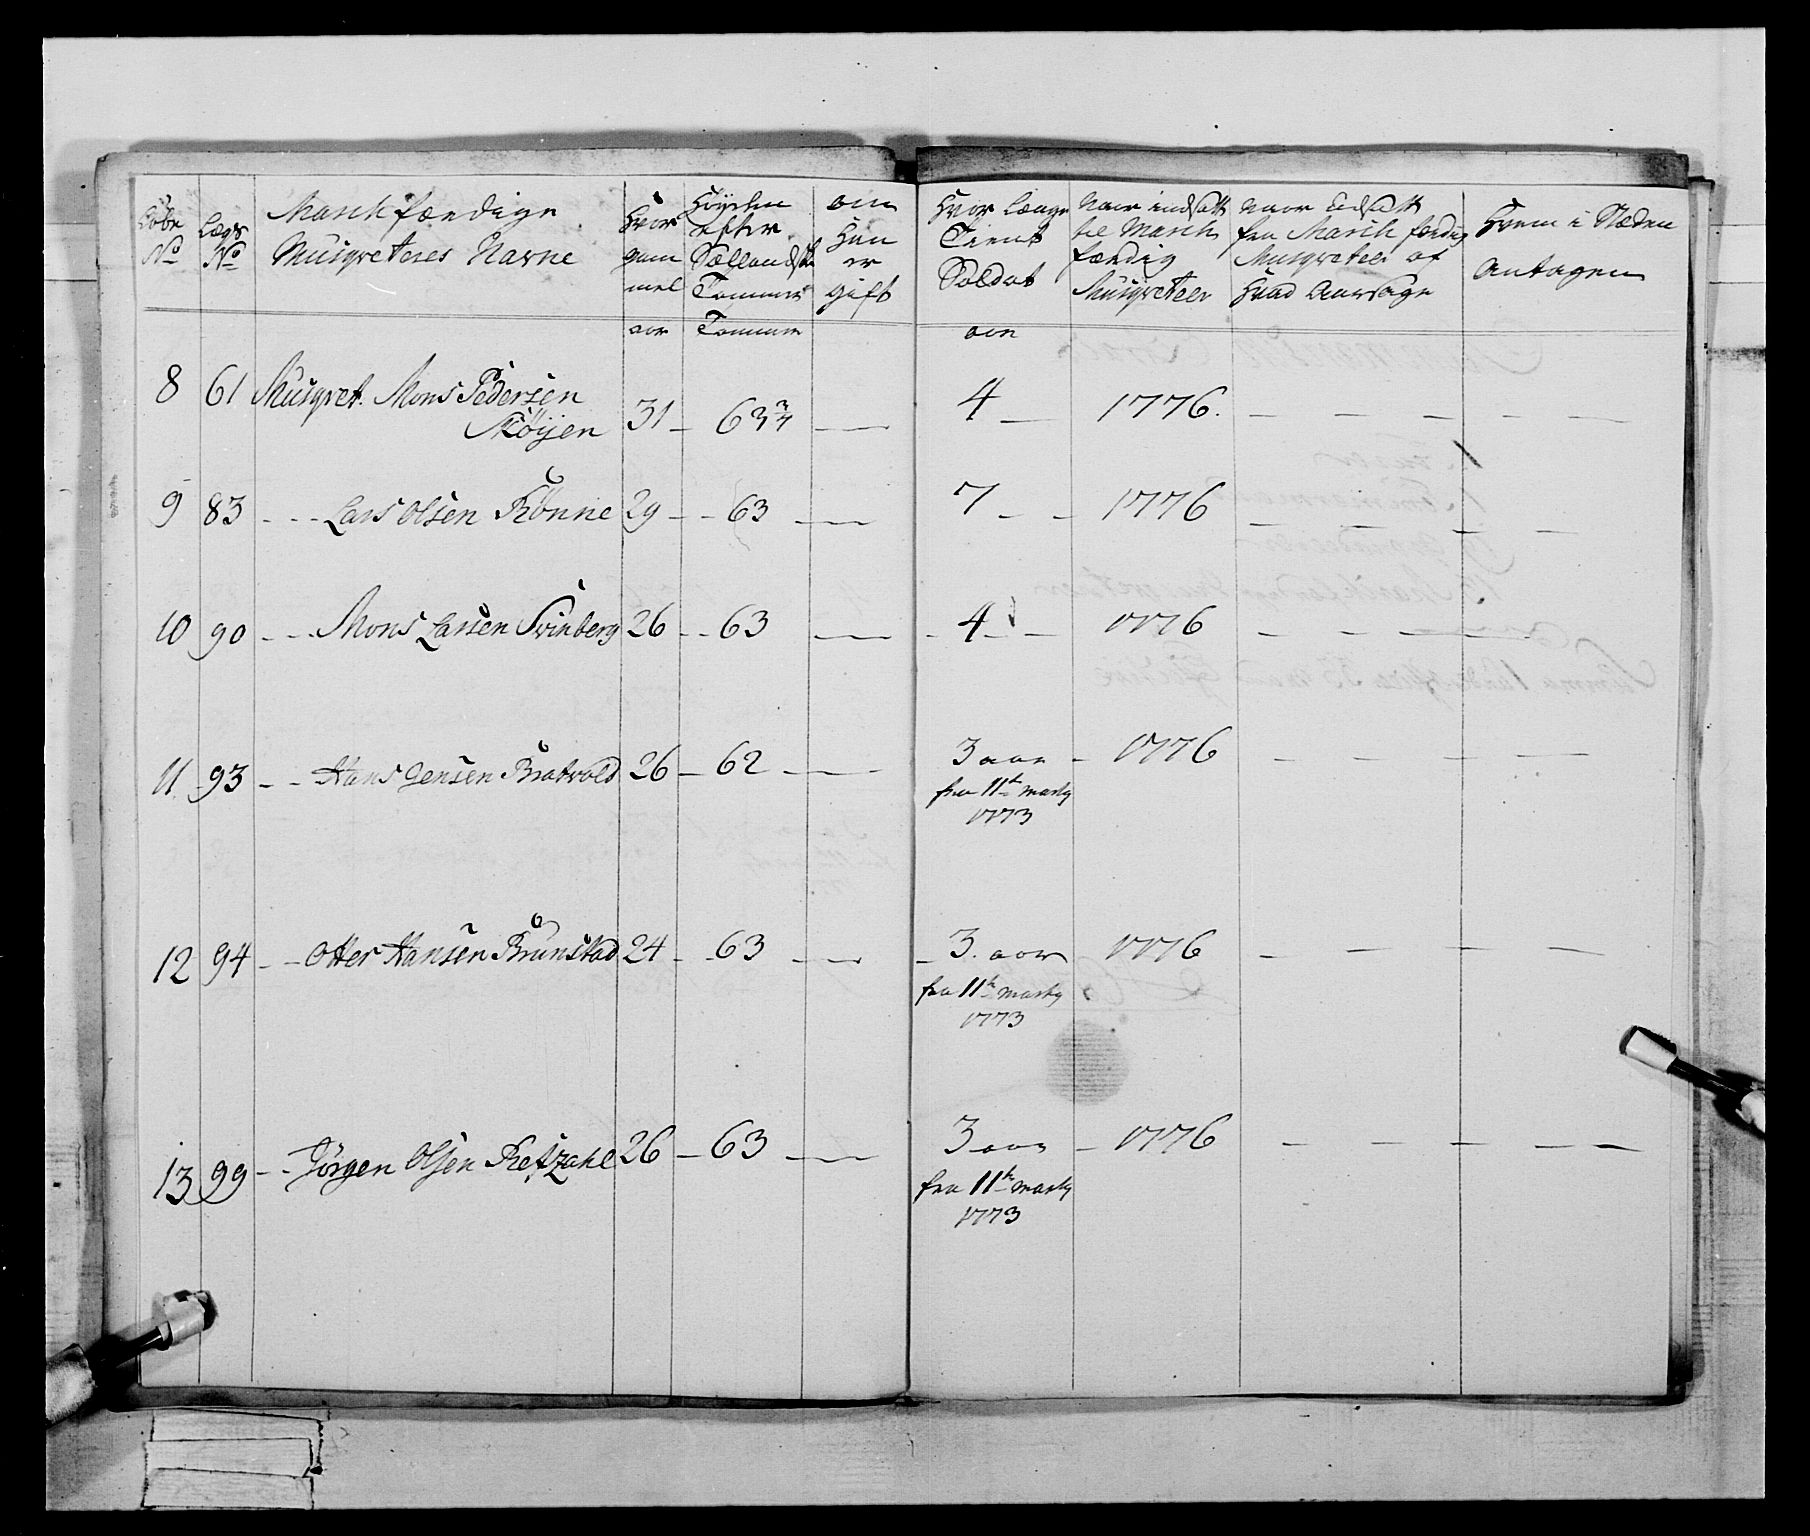 Løbe No
Lægs No
Marchfærdige
Musqveterers Navne
Hvor
gam
mel
Høyden
efter
Sællandsk
Tommer
om
Han
er
gift
Hvor Længe
Tient
Soldat
Naar indsatt
til March
færdig
Musqveteer
naar Udsatt
fra March færdig
Musqveteer af
Hvad Aarsage
Hvem i Stæden
Antagen
aar Tommer aar
8 61 Musqvet. Mons Pedersen
Møyen 31 – 63 3/4 — 4 — 1776. — — — — —
9 83 - - - Lars Olsen Rønne 29 - - 63 — 7 - - 1776 — — — —
10 90 - - - Mons Larsen Svinberg 26 - - 63 — - 4 - - 1776 — — —
11 93 - - Hans Jensen Bratvold 26 - 62 — 3 aar - 1776 - - - - —
fra 11te marty
1773
12 94 - - Otter Hansen Brunstad 24 - - 63 — - 3. aar 1776 - — — — —
fra 11te marty
1773
13 99 - - Jørgen Olsen Refzahl 26 - 63 — 3 aar - 1776 - — — — —
fra 11te marty
1773